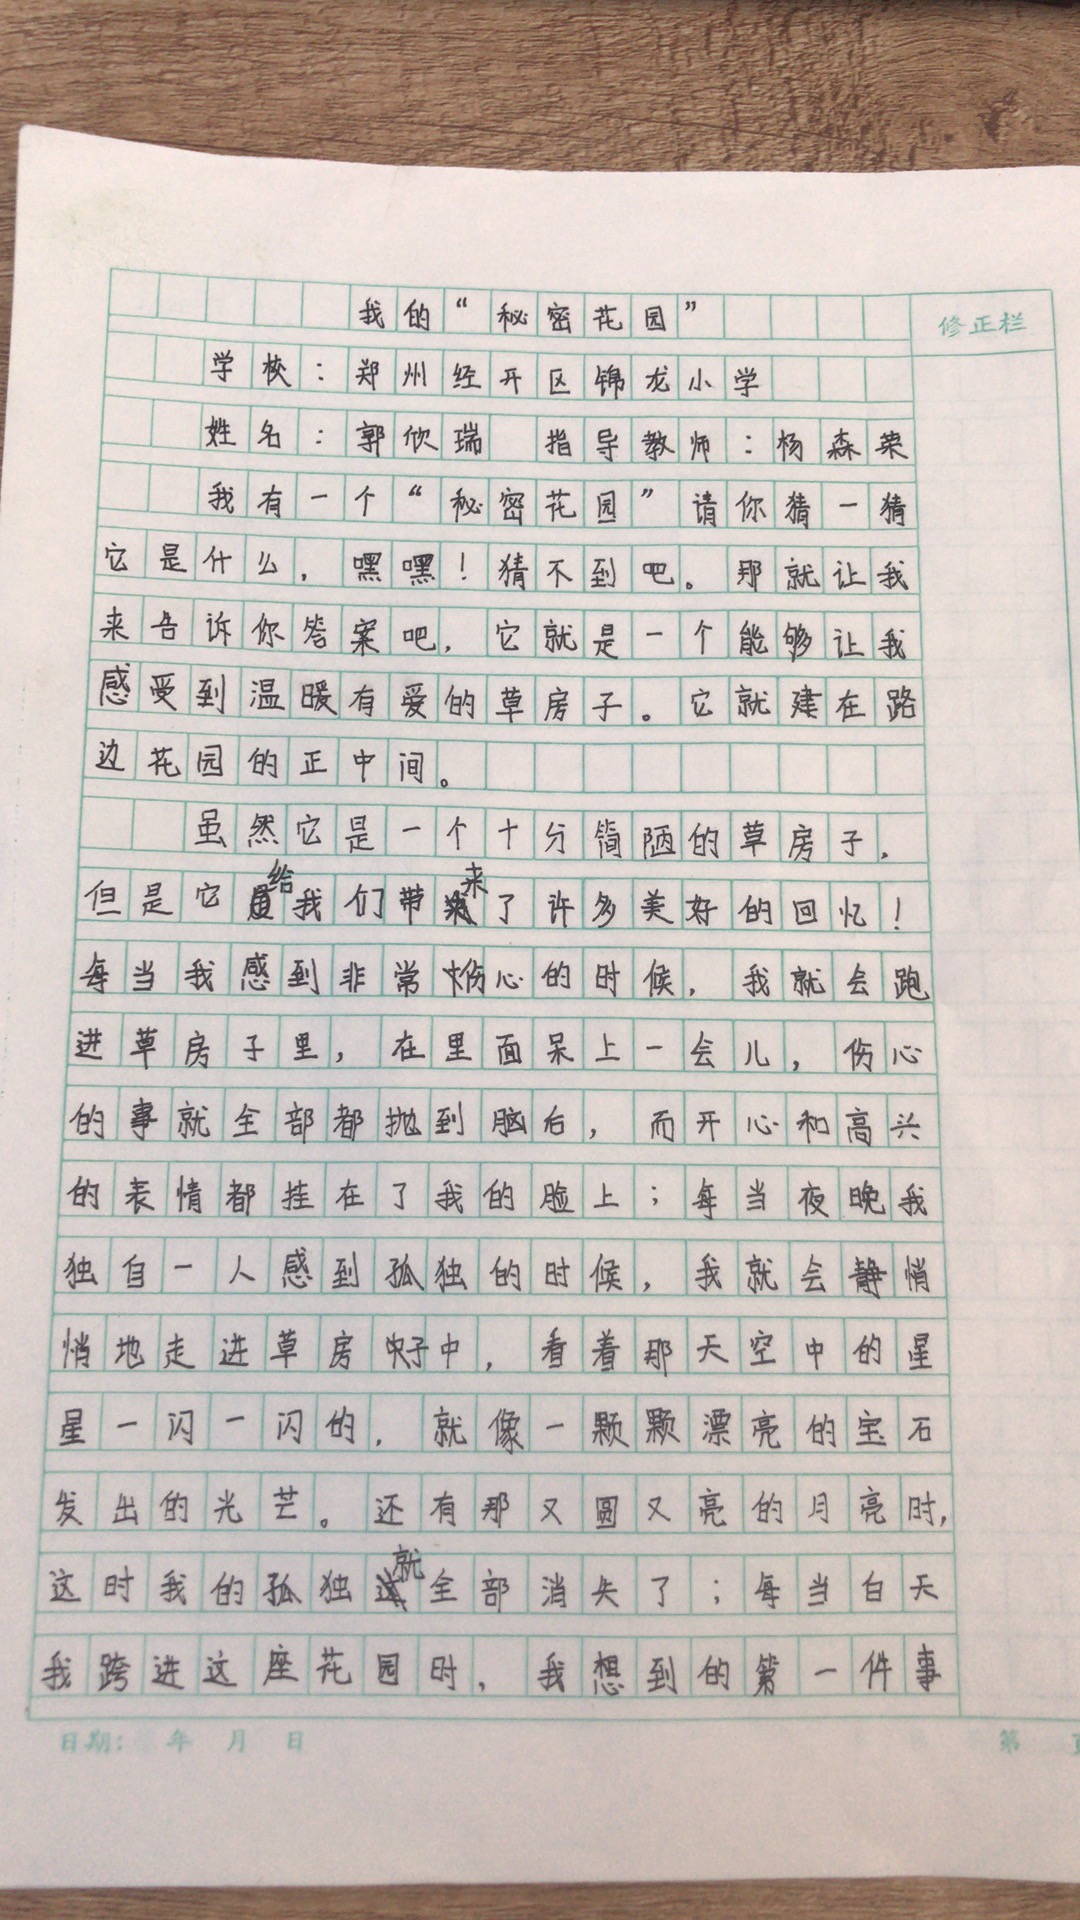 我的“秘密花园”
修正栏
学校：郑州经开区锦龙小学
姓名：郭欣瑞 指导教师：杨森荣
我有一个“秘密花园”请你猜一猜
它是什么，嘿嘿！猜不到吧。那就让我
来告诉你答案吧，它就是一个能够让我
感受到温暖有爱的草房子。它就建在路
边花园的正中间。
虽然它是一个十分简陋的草房子，
但是它给我们带来了许多美好的回忆！
每当我感到非常伤心的时候，我就会跑
进草房子里，在里面呆上一会儿，伤心
的事就全部都抛到脑后，而开心和高兴
的表情都挂在了我的脸上；每当夜晚我
独自一人感到孤独的时候，我就会静悄
悄地走进草房子中，看着那天空中的星
星一闪一闪的，就像一颗颗漂亮的宝石
发出的光芒。还有那又圆又亮的月亮时，
这时我的孤独就全部消失了；每当白天
我跨进这座花园时，我想到的第一件事
日期： 年 月 日
第 页